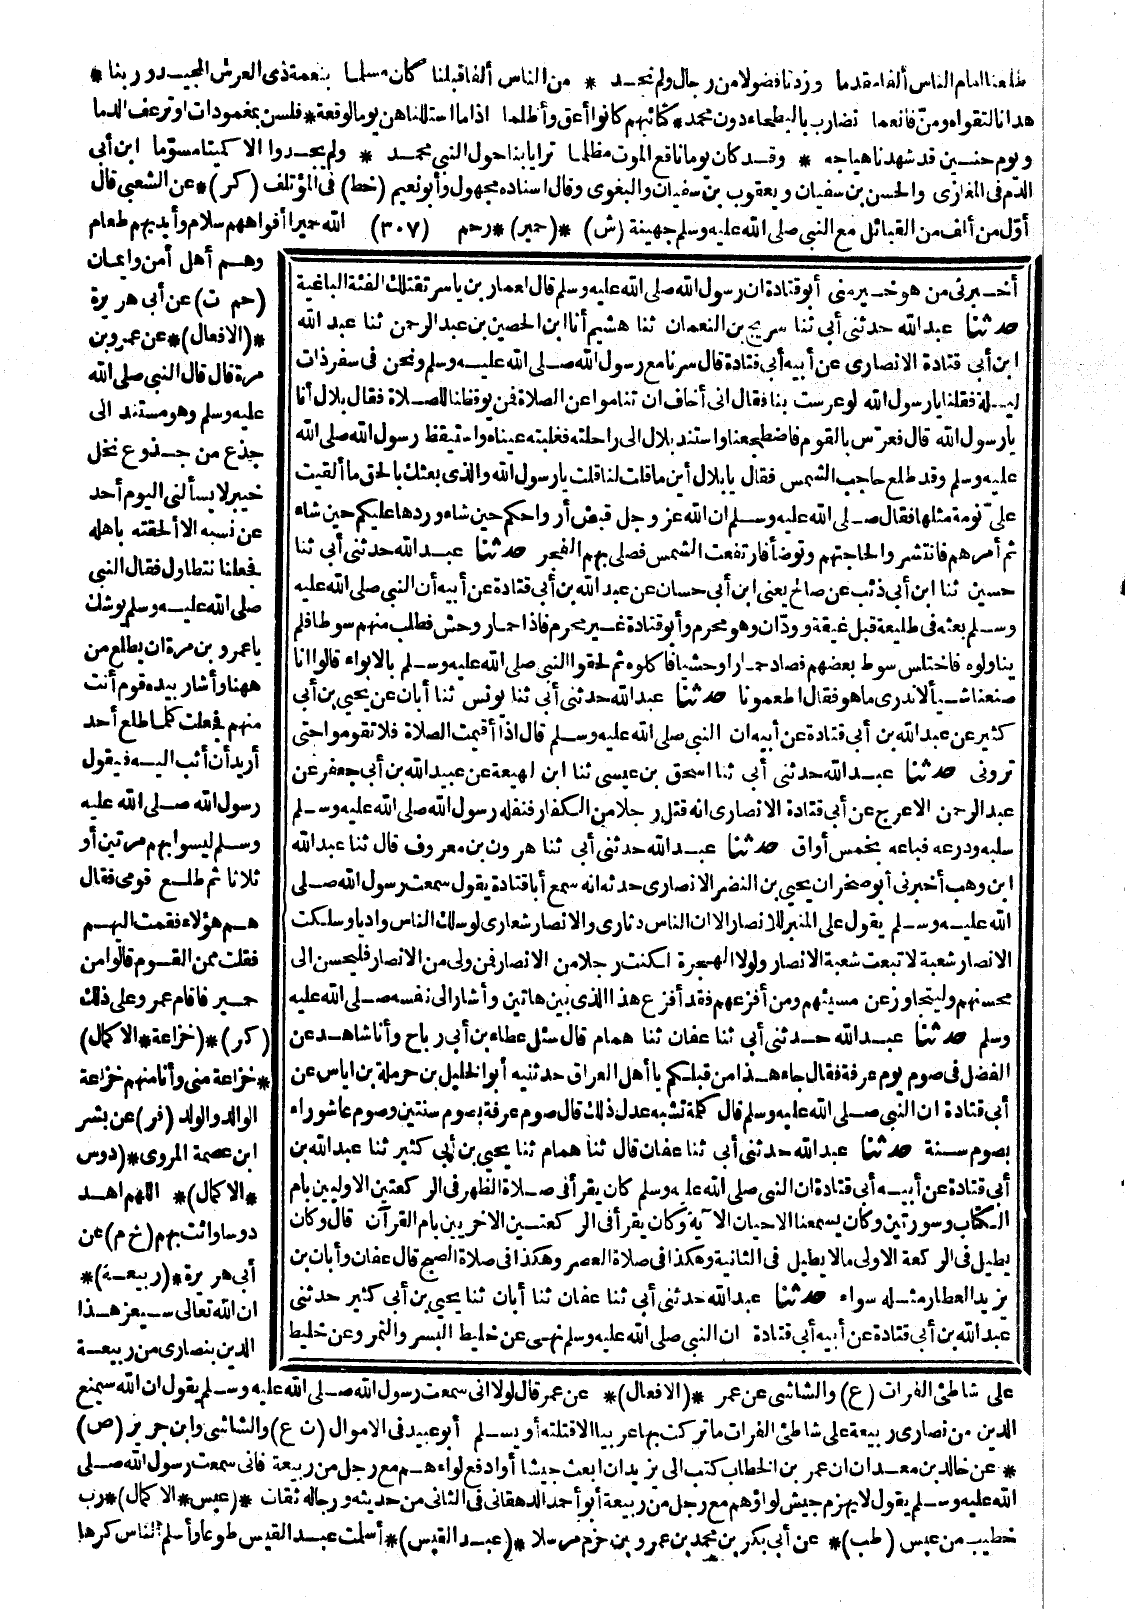 طلعنا امام الناس ألفا مقدما وزدنا فضولا من رجال ولم نجد * من الناس ألفا قبلنا كان مسلما بنعمة ذى العرش المجيد وربنا *
هدانا لتقواه ومنّ فانعما نضارب بالبطحاء دون محمد * كتائبهم كانوا أعق وأظلما اذا ما استللناهن يوما لوقعة * فلسن بمغمودات او ترعف الدما
ويوم حنين قد شهدنا هياجه * وقد كان يوما ناقع الموت مظلما ترابا بنا حول النبي محمد * ولم يجدوا الا كميتا مسوّما ابن أبي
الدّم فى المغازى والحسن بن سفيان ويعقوب بن سفيان والبغوى وقال اسناده مجهول وأبو نعيم (خط) فى المؤتلف (كر)* عن الشعبي قال
أوّل من ألف من القبائل مع النبي صلى الله عليه وسلم جهينة (ش) *(حمير)* رحم (٣٠٧) الله حميرا أفواههم سلام وأيديهم طعام
وهم أهل أمن وايمان
(حم ت) عن أبى هريرة
*(الافعال)* عن عمرو بن
مرة قال قال النبي صلى الله
عليه وسلم وهو مستند الى
جذع من جذوع نخل
خيبر لا يسألنى اليوم أحد
عن نسبه الا ألحقته باهله
فجعلنا نتطاول فقال النبي
صلى الله عليه وسلم يوشك
يا عمرو بن مرة ان يطلع من
ههنا وأشار بيده قوم أنت
منهم فجعلت كلما طلع أحد
أريد أن أثب اليه فيقول
رسول الله صلى الله عليه
وسلم ليسوا بهم مرتين أو
ثلاثا ثم طلع قومى فقال
هم هؤلاء فقمت اليهم
فقلت ممن القوم قالوا من
حمير فاقام عمرو على ذلك
(كر)*(خزاعة* الاكمال)
* خزاعة منى وأنا منهم خزاعة
الوالد والولد (فر) عن بشر
ابن عصمة المزوى *(دوس
* الاكمال)* اللهم اهد
دوسا وائت بهم (خ م) عن
أبى هريرة *(ربيعة)*
ان الله تعالى سيعز هذا
الدين بنصارى من ربيعة
أخبرنى من هو خير منى أبو قتادة ان رسول الله صلى الله عليه وسلم قال لعمار بن ياسر تقتلك الفئة الباغية
حدثنا عبد الله حدثنى أبي ثنا سريج بن النعمان ثنا هشيم أنا ابن الحصين بن عبد الرحمن ثنا عبد الله
ابن أبي قتادة الانصارى عن أبيه أبي قتادة قال سرنا مع رسول الله صلى الله عليه وسلم ونحن فى سفر ذات
ليلة فقلنا يا رسول الله لو عرست بنا فقال انى أخاف ان تناموا عن الصلاة فمن يوقظنا للصلاة فقال بلال أنا
يا رسول الله قال فعرّس بالقوم فاضطجعنا واستند بلال الى راحلته فغلبته عيناه واستيقظ رسول الله صلى الله
عليه وسلم وقد طلع حاجب الشمس فقال يا بلال أين ما قلت لنا قلت يا رسول الله والذى بعثك بالحق ما ألقيت
علىّ نومة مثلها فقال صلى الله عليه وسلم ان الله عز وجل قبض أرواحكم حين شاء وردها عليكم حين شاء
ثم أمرهم فانتشروا لحاجتهم وتوضأ فارتفعت الشمس فصلى بهم الفجر حدثنا عبد الله حدثنى أبي ثنا
حسين ثنا ابن أبي ذئب عن صالح يعنى ابن أبي حسان عن عبد الله بن أبي قتادة عن أبيه أن النبي صلى الله عليه
وسلم بعثه فى طليعة قبل غيقة وودّان وهو محرم وأبو قتادة غير محرم فاذا حمار وحش فطلب منهم سوطا فلم
يناولوه فاختلس سوط بعضهم فصاد حمارا وحشيا فاكلوه ثم لحقوا النبي صلى الله عليه وسلم بالابواء قالوا انا
صنعنا شيأ لا ندرى ما هو فقال اطعمونا حدثنا عبد الله حدثنى أبي ثنا يونس ثنا أبان عن يحيى بن أبي
كثير عن عبد الله بن أبي قتادة عن أبيه ان النبي صلى الله عليه وسلم قال اذا أقيمت الصلاة فلا تقوموا حتى
ترونى حدثنا عبد الله حدثنى أبي ثنا اسحق بن عيسى ثنا ابن لهيعة عن عبيد الله بن أبي جعفر عن
عبد الرحمن الاعرج عن أبي قتادة الانصارى انه قتل رجلا من الكفار فنفله رسول الله صلى الله عليه وسلم
سلبه ودرعه فباعه بخمس أواق حدثنا عبد الله حدثنى أبي ثنا هرون بن معروف قال ثنا عبد الله
ابن وهب أخبرنى أبو صخر ان يحيى بن النضر الانصارى حدثه انه سمع أبا قتادة يقول سمعت رسول الله صلى
الله عليه وسلم يقول على المنبر للانصار الا ان الناس دثارى والانصار شعارى لو سلك الناس واديا وسلكت
الانصار شعبة لاتبعت شعبة الانصار ولولا الهجرة لكنت رجلا من الانصار فمن ولى من الانصار فليحسن الى
محسنهم وليتجاوز عن مسيئهم ومن أفزعهم فقد أفزع هذا الذى بين هاتين وأشار الى نفسه صلى الله عليه
وسلم حدثنا عبد الله حدثنى أبي ثنا عفان ثنا همام قال سئل عطاء بن أبي رباح وأنا شاهد عن
الفضل فى صوم يوم عرفة فقال جاء هذا من قبلكم يا أهل العراق حدثنيه أبو الخليل بن حرملة بن اياس عن
أبي قتادة ان النبي صلى الله عليه وسلم قال كلمة تشبه عدل ذلك قال صوم عرفة بصوم سنتين وصوم عاشوراء
بصوم سنة حدثنا عبد الله حدثنى أبي ثنا عفان قال ثنا همام ثنا يحيى بن أبي كثير ثنا عبد الله بن
أبي قتادة عن أبيه أبي قتادة ان النبي صلى الله عليه وسلم كان يقرأ فى صلاة الظهر فى الركعتين الاوليين بام
الكتاب وسورتين وكان يسمعنا الاحيان الآية وكان يقرأ فى الركعتين الاخريين بام القرآن قال وكان
يطيل فى الركعة الاولى مالا يطيل فى الثانية وهكذا فى صلاة العصر وهكذا فى صلاة الصبح قال عفان وأبان بن
يزيد العطار مثله سواء حدثنا عبد الله حدثنى أبي ثنا عفان ثنا أبان ثنا يحيى بن أبي كثير حدثنى
عبد الله بن أبي قتادة عن أبيه أبي قتادة ان النبي صلى الله عليه وسلم نهى عن خليط البسر والتمر وعن خليط
على شاطئ الفرات (ع) والشاشى عن عمر *(الافعال)* عن عمر قال لولا انى سمعت رسول الله صلى الله عليه وسلم يقول ان الله سيمنع
الدين من نصارى ربيعة على شاطئ الفرات ما تركت بها عربيا الا قتلته أو يسلم أبو عبيد فى الاموال (ن ع) والشاشى وابن جرير (ص)
* عن خالد بن معدان ان عمر بن الخطاب كتب الى يزيد ان ابعث جيشا أو ادفع لواءهم مع رجل من ربيعة فانى سمعت رسول الله صلى
الله عليه وسلم يقول لا يهزم جيش لواؤهم مع رجل من ربيعة أبو أحمد الدهقانى فى الثانى من حديثه ورجاله ثقات *(عبس* الاكمال)* رب
خطيب من عبس (طب)* عن أبي بكر بن محمد بن عمرو بن حزم مرسلا *(عبد القيس)* أسلمت عبد القيس طوعا وأسلم الناس كرها